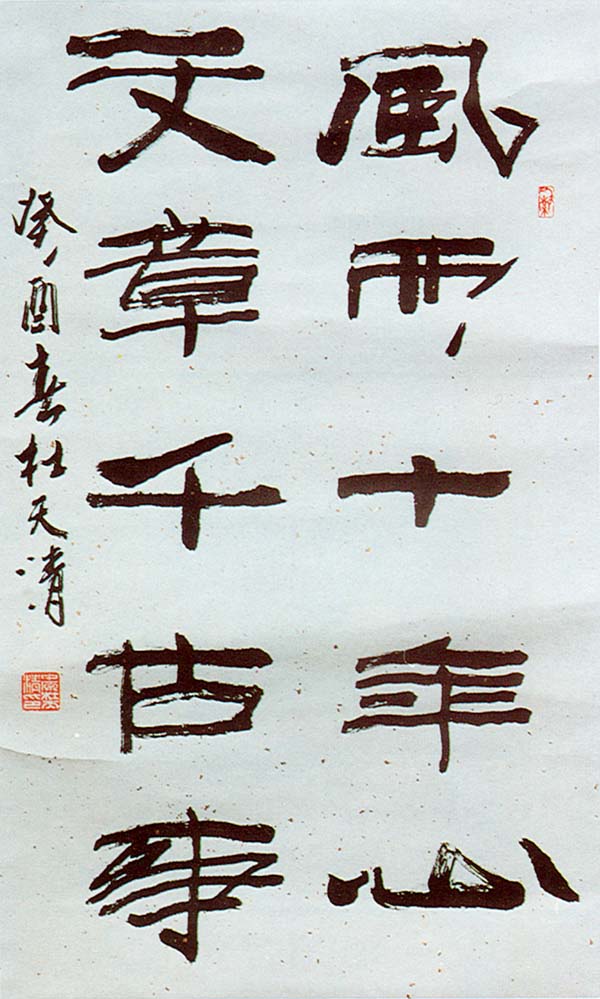 風雨十年心
文章千古事
癸酉春杜天清